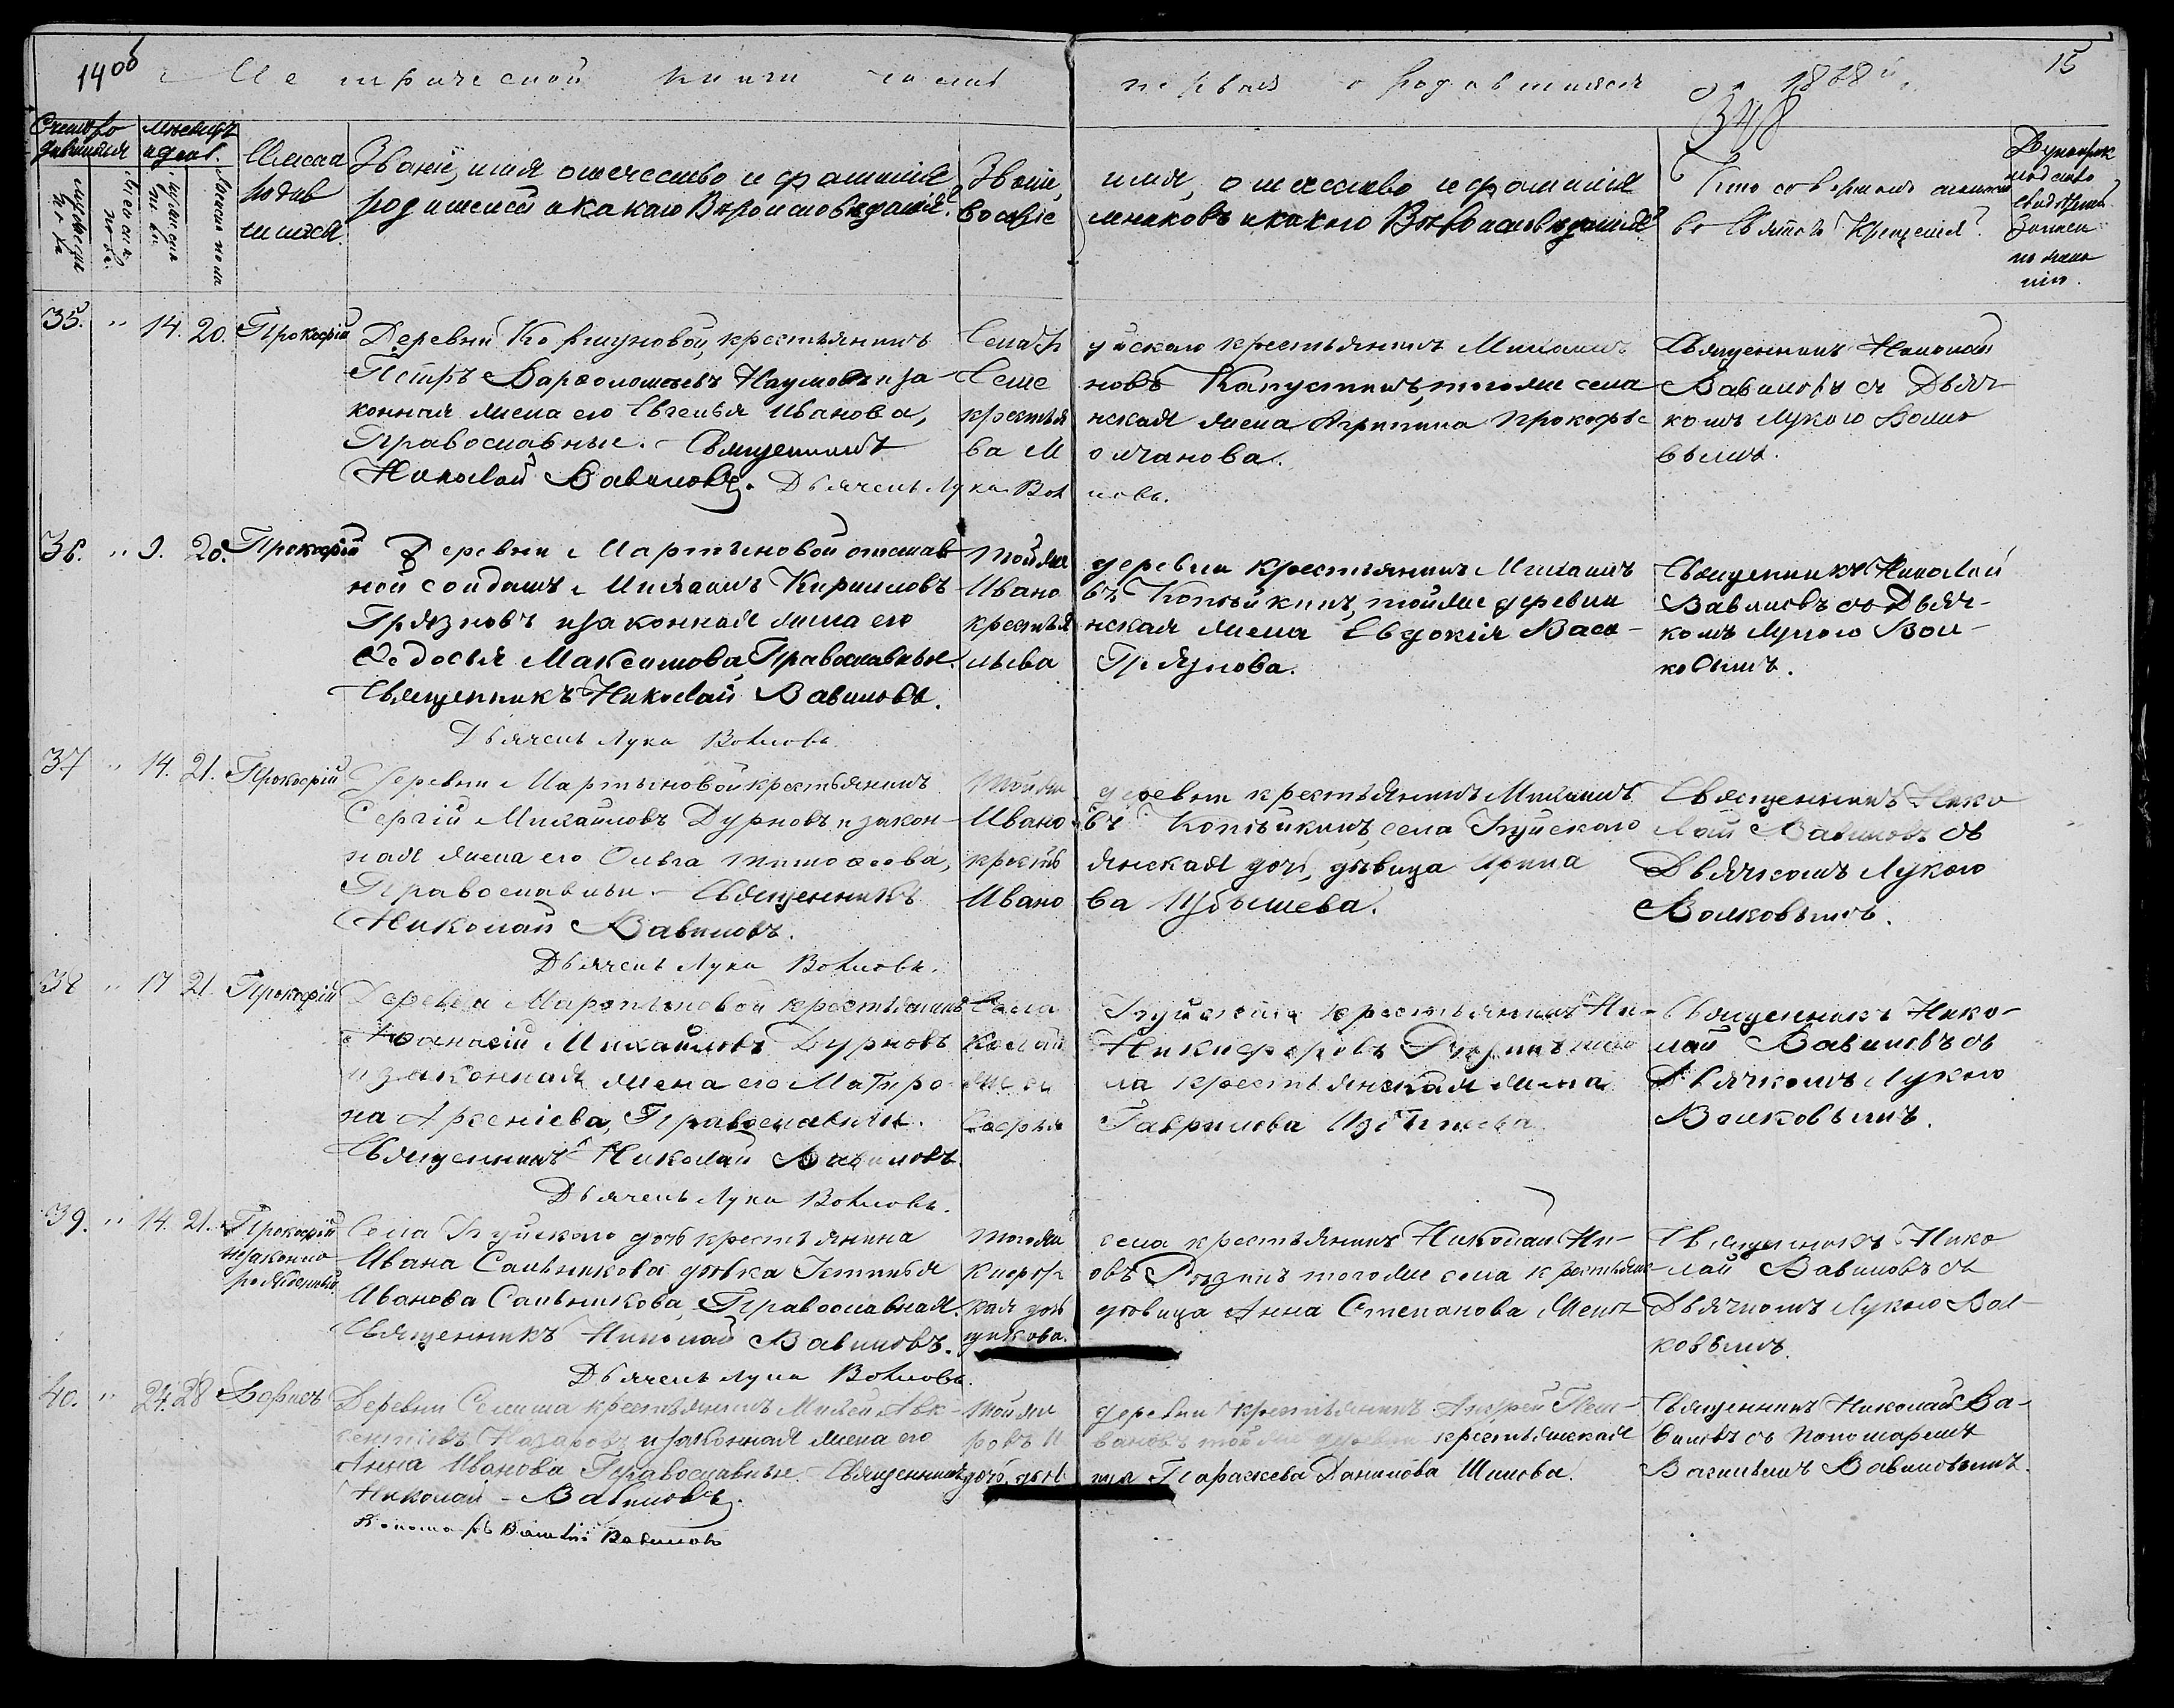 14об Метрической книги часть первая о родавшихся 1868й. 15
348
Счетъ родившихся
мужеска пола
женска пола
месяцъ и день.
рожденiя
крещенiя
Имена родившихся.
Званiе, имя отечество и фамилiя родителей и какого Вероисповеданiя.
Званiе, имя, отечество и фамилiя воспрiемниковъ и какого Вероисповеданiя
Кто совершалъ таинство Святаго Крещенiя
Рукоприкладство свидетелей записи по желанiю.
35. " 14. 20. Прокофiй
Деревни Коршуновой, крестьянинъ
Петръ Варфоломеевъ Наумовъ и за-
конная жена его Евгенья Иванова,
Православные. Священникъ
Николай Вавиловъ. Дьячекъ Лука Волковъ.
уйскаго крестьянинъ Михаилъ
новъ Капустинъ, тогоже села
крестьянская жена Агрипина Прокофье-
ва Молчанова.
Священникъ Николай
Вавиловъ съ Дьяч-
комъ Лукою Волко-
вымъ.
36. " 9. 20. Прокофiй
Деревни Мартыновой отстав-
ной солдатъ Михаилъ Кириловъ
Грязновъ и законная жена его
Федосья Максимова, Православные.
Священникъ Николай Вавиловъ.
Дьячекъ Лука Волковъ.
Тойже деревни крестьянинъ Михаилъ
Ивановъ Копейкинъ, тойже деревни
крестьянская жена Евдокiя Васи-
льева Грязнова.
Священникъ Николай
Вавиловъ со Дьяч-
комъ Лукою Вол-
ковымъ.
37 " 14. 21. Прокофiй
Деревни Мартыновой крестьянинъ
Сергiй Михайловъ Дурновъ и закон-
ная жена его Ольга Тимофеева,
Православные. Священникъ
Николай Вавиловъ.
Дьячекъ Лука Волковъ.
Тойже деревни крестьянинъ Михаилъ
Ивановъ Копейкинъ, села Куйскаго
крестьянская дочь, девица Ирина
Иванова
Священникъ Нико-
лай Вавиловъ съ
Дьячкомъ Лукою
Волковымъ.
38 " 17 21. Прокофiй
Деревни Мартыновой крестьянинъ
Афанасiй Михайловъ Дурновъ
и законная жена его Матро-
на Арсенiева, Православные.
Священникъ Николай Вавиловъ
Дьячекъ Лука Волковъ.
Села Куйскаго крестьянинъ Ни-
колай Никифоровъ
села крестьянская жена
Софья Гаврилова
Священникъ Нико-
лай Вавиловъ съ
Дьячкомъ Лукою
Волковымъ.
39. " 14. 21. Прокофiй незаконнорожденный
Села Куйскаго дочь крестьянина
Ивана Сальникова девка Устинья
Иванова Сальникова, Православная.
Священникъ Николай Вавиловъ.
Дьячекъ Лука Волковъ.
Тогоже села крестьянинъ Николай Ни-
кифоровъ тогоже села крестьянс-
кая дочь девица Анна Степанова
Священникъ Нико-
лай Вавиловъ съ
Дьячкомъ Лукою Вол-
ковымъ.
40. " 24. 28 Борисъ
Деревни Селища крестьянинъ
Назаровъ и законная жена его
Анна Иванова Православные. Священникъ
Николай Вавиловъ.
Пономарь Василiй Вавиловъ
Тойже деревни крестьянинъ Андрей Пет-
ровъ Ивановъ тойже деревни крестьянская
дочь, девица Параскева Данилова Шилова.
Священникъ Николай Ва-
виловъ съ Пономаремъ
Василiемъ Вавиловымъ.